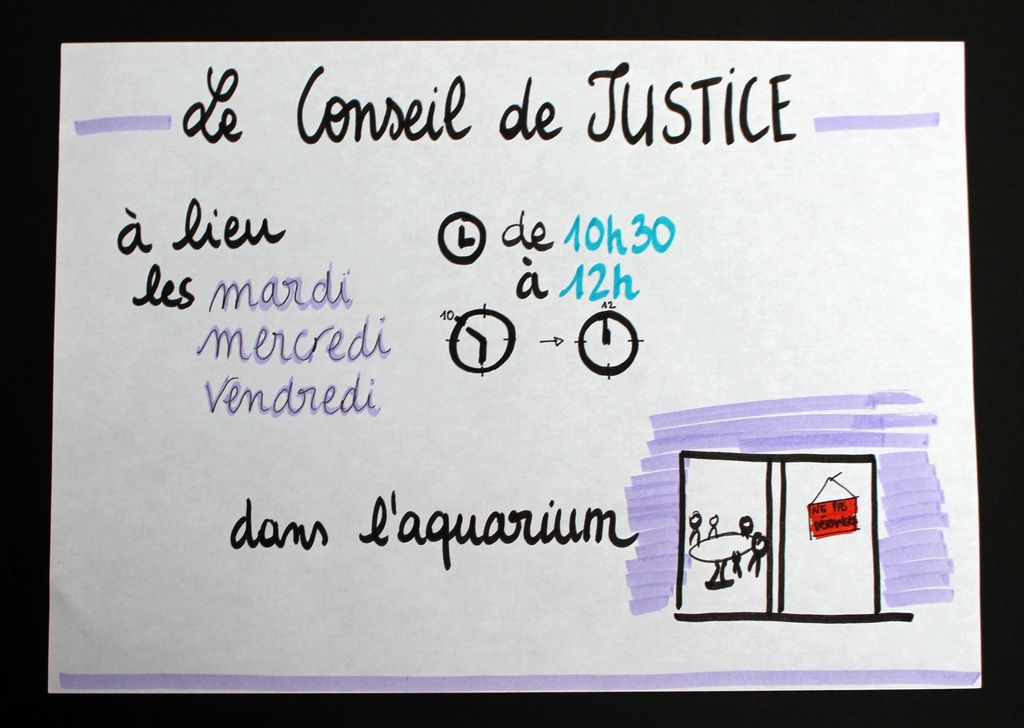 Le Conseil de JUSTICE
à lieu
les mardi
mercredi
vendredi
de 10h30
à 12h
10
12
dans l'aquarium
NE PAS
DÉRANGER